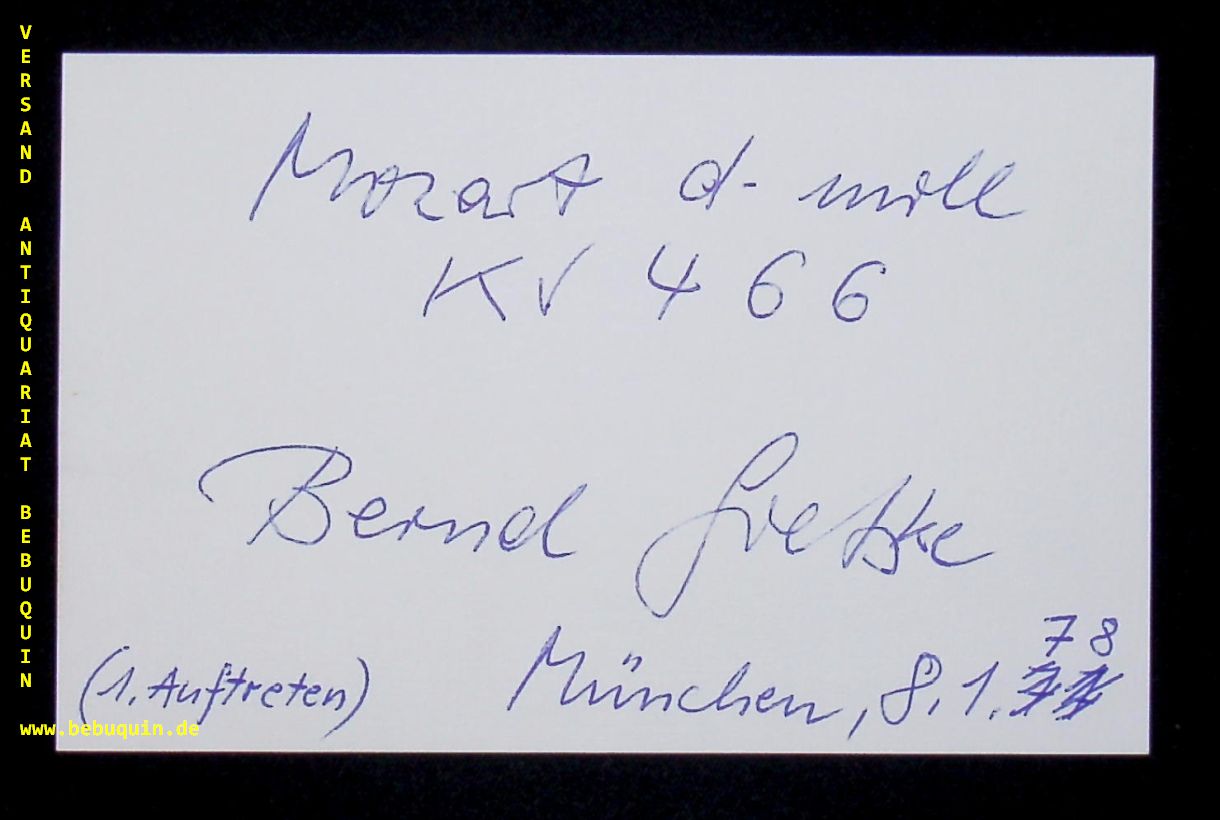 VERSAND ANTIQUARIAT BEBUQUIN
Mozart d-moll
KV 466
Bernd Goetzke
(1. Auftreten) München, 8.1. 78
www.bebuquin.de